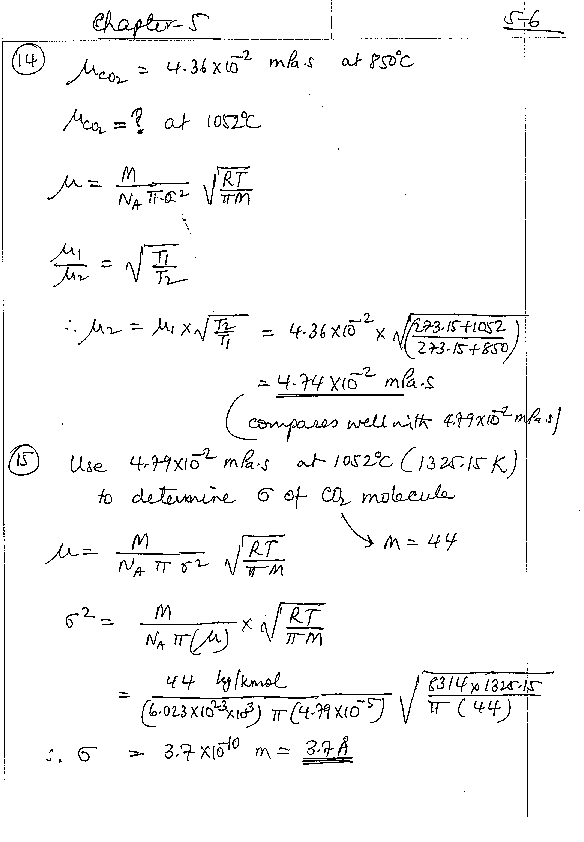 Chapter-5
5-6
14 μCO₂ = 4.36×10⁻² mPa·s at 850°C
μCO₂ = ? at 1052°C
μ = M / (N_A π σ²) √(RT / πM)
μ₁/μ₂ = √(T₁/T₂)
∴ μ₂ = μ₁ × √(T₂/T₁) = 4.36×10⁻² × √((273.15+1052) / (273.15+850))
= 4.74×10⁻² mPa·s
(compares well with 4.79×10⁻² mPa·s)
15 Use 4.79×10⁻² mPa·s at 1052°C (1325.15 K)
to determine σ of CO₂ molecule
μ = M / (N_A π σ²) √(RT / πM) → M = 44
σ² = M / (N_A π(μ)) × √(RT / πM)
= 44 kg/kmol / ((6.023×10²³×10³) π (4.79×10⁻⁵)) √(8314×1325.15 / π(44))
∴ σ = 3.7×10⁻¹⁰ m = 3.7Å